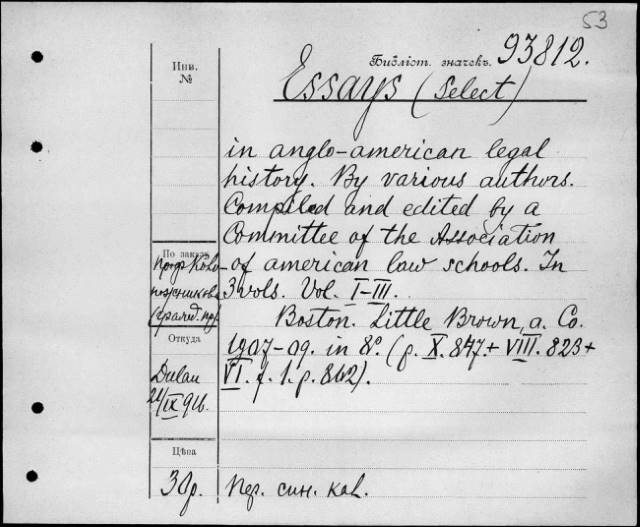 53
Библіот. значекъ. 93812.
Инв.
№
Essays (Select)
in anglo-american legal
history. By various authors.
Compiled and edited by a
Committee of the Association
По заказу
проф. Кож-
of american law schools. In
3 vols. Vol. I-III.
Boston. Little Brown, a. Co.
Откуда
1907-09. in 8º. (p. X. 847.+ VIII. 823+
VI. f. 1. p. 862).
Dulau
21/IX 916.
Цѣна
30р.
пер. син. кол.